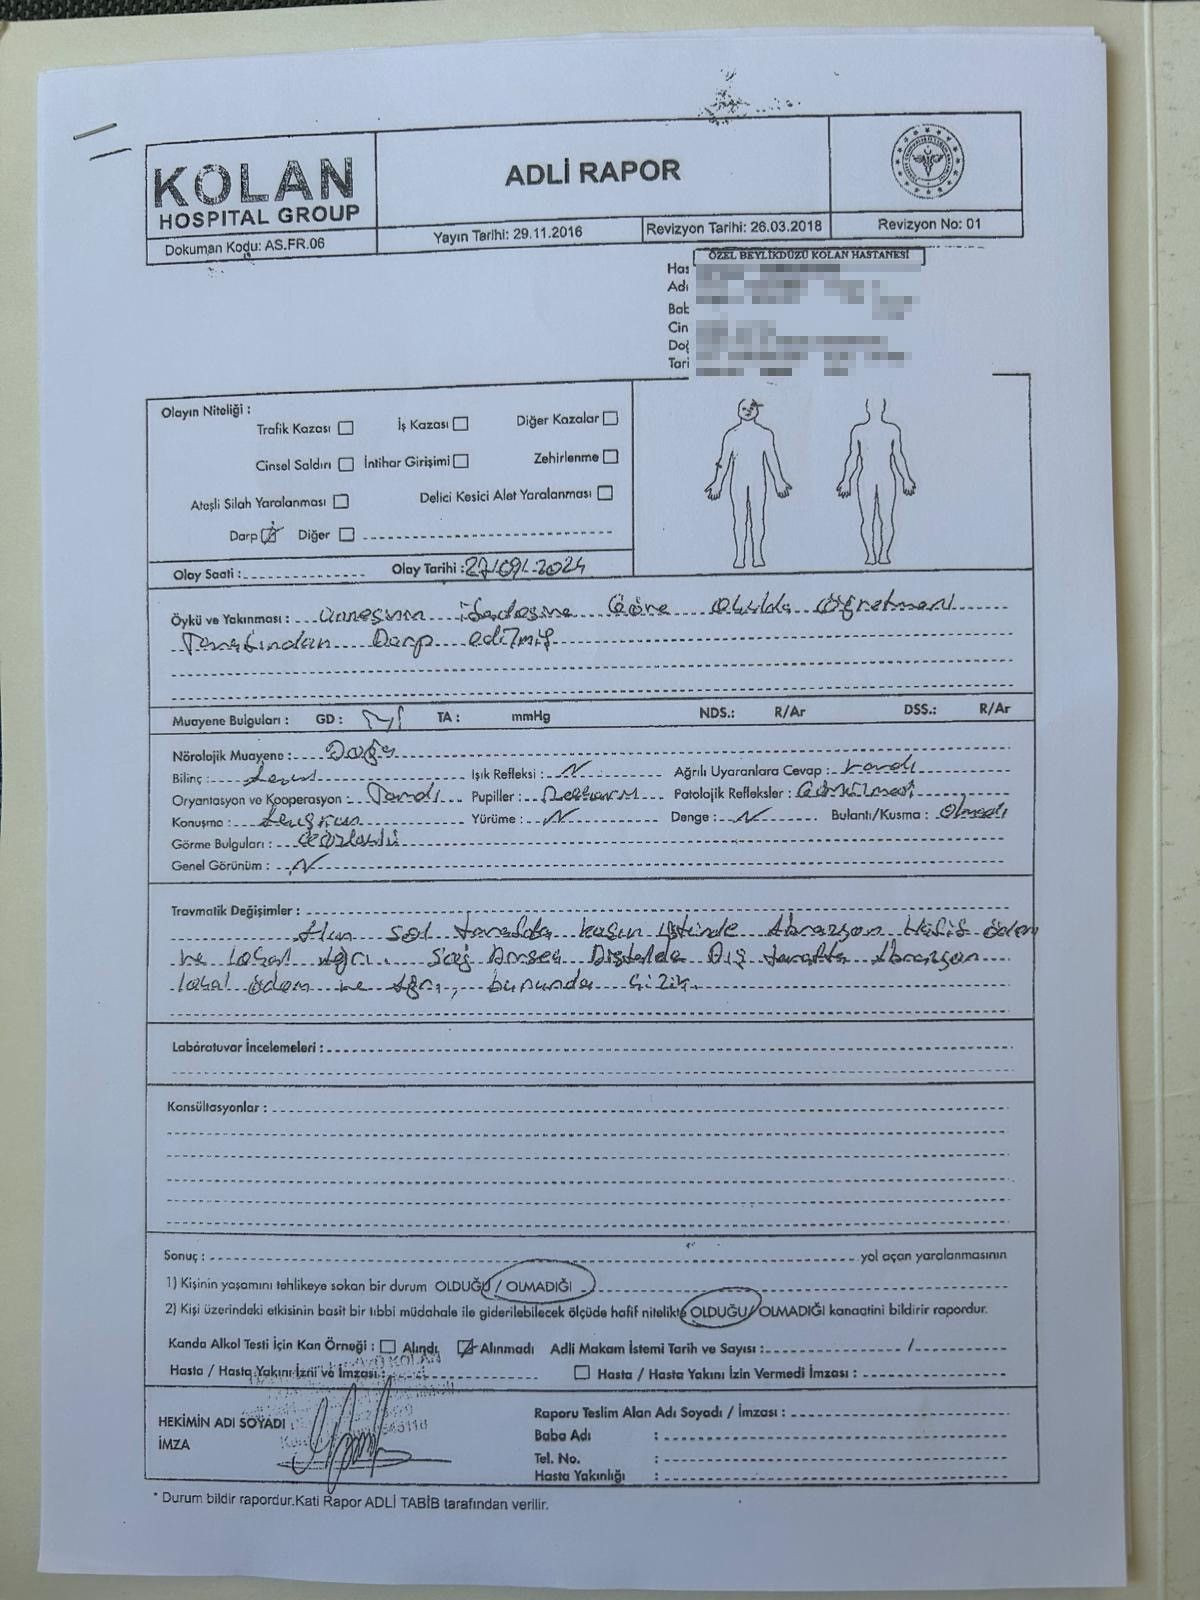 KOLAN
HOSPITAL GROUP
Dokuman Kodu: AS.FR.06
ADLİ RAPOR
Yayın Tarihi: 29.11.2016
Revizyon Tarihi: 26.03.2018
Revizyon No: 01
ÖZEL BEYLİKDÜZÜ KOLAN HASTANESİ
Has
Adı
Bab
Cin
Doğ
Tari
Olayın Niteliği :
Trafik Kazası İş Kazası Diğer Kazalar
Cinsel Saldırı İntihar Girişimi Zehirlenme
Ateşli Silah Yaralanması Delici Kesici Alet Yaralanması
Darp Diğer
Olay Saati : Olay Tarihi : 27/09/2024
Öykü ve Yakınması : annesinin ifadesine Göre okulda öğretmeni
Tarafından Darp edilmiş
Muayene Bulguları : GD : TA : mmHg NDS.: R/Ar DSS.: R/Ar
Nörolojik Muayene : Doğal
Bilinç : Işık Refleksi : N Ağrılı Uyaranlara Cevap : vardı
Oryantasyon ve Kooperasyon : Tamdı Pupiller : Patolojik Refleksler :
Konuşma : Yürüme : N Denge : N Bulantı/Kusma : olmadı
Görme Bulguları :
Genel Görünüm : N
Travmatik Değişimler :
Alın sol tarafda kaşın üstünde Abrazyon Hafif ödem
ve lokal ağrı. Sağ Dirsek Distalde Dış tarafta Abrazyon
lokal ödem ve ağrı, burunda çizik.
Labóratuvar İncelemeleri :
Konsültasyonlar :
Sonuç : yol açan yaralanmasının
1) Kişinin yaşamını tehlikeye sokan bir durum OLDUĞU / OLMADIĞI
2) Kişi üzerindeki etkisinin basit bir tıbbi müdahale ile giderilebilecek ölçüde hafif nitelikte OLDUĞU/OLMADIĞI kanaatini bildirir rapordur.
Kanda Alkol Testi İçin Kan Örneği : Alındı Alınmadı Adli Makam İstemi Tarih ve Sayısı : /
Hasta / Hasta Yakını İzni ve İmzası : Hasta / Hasta Yakını İzin Vermedi İmzası :
KOLAN
HEKİMİN ADI SOYADI
İMZA
Raporu Teslim Alan Adı Soyadı / İmzası :
Baba Adı :
Tel. No. :
Hasta Yakınlığı :
* Durum bildir rapordur.Kati Rapor ADLİ TABİB tarafından verilir.